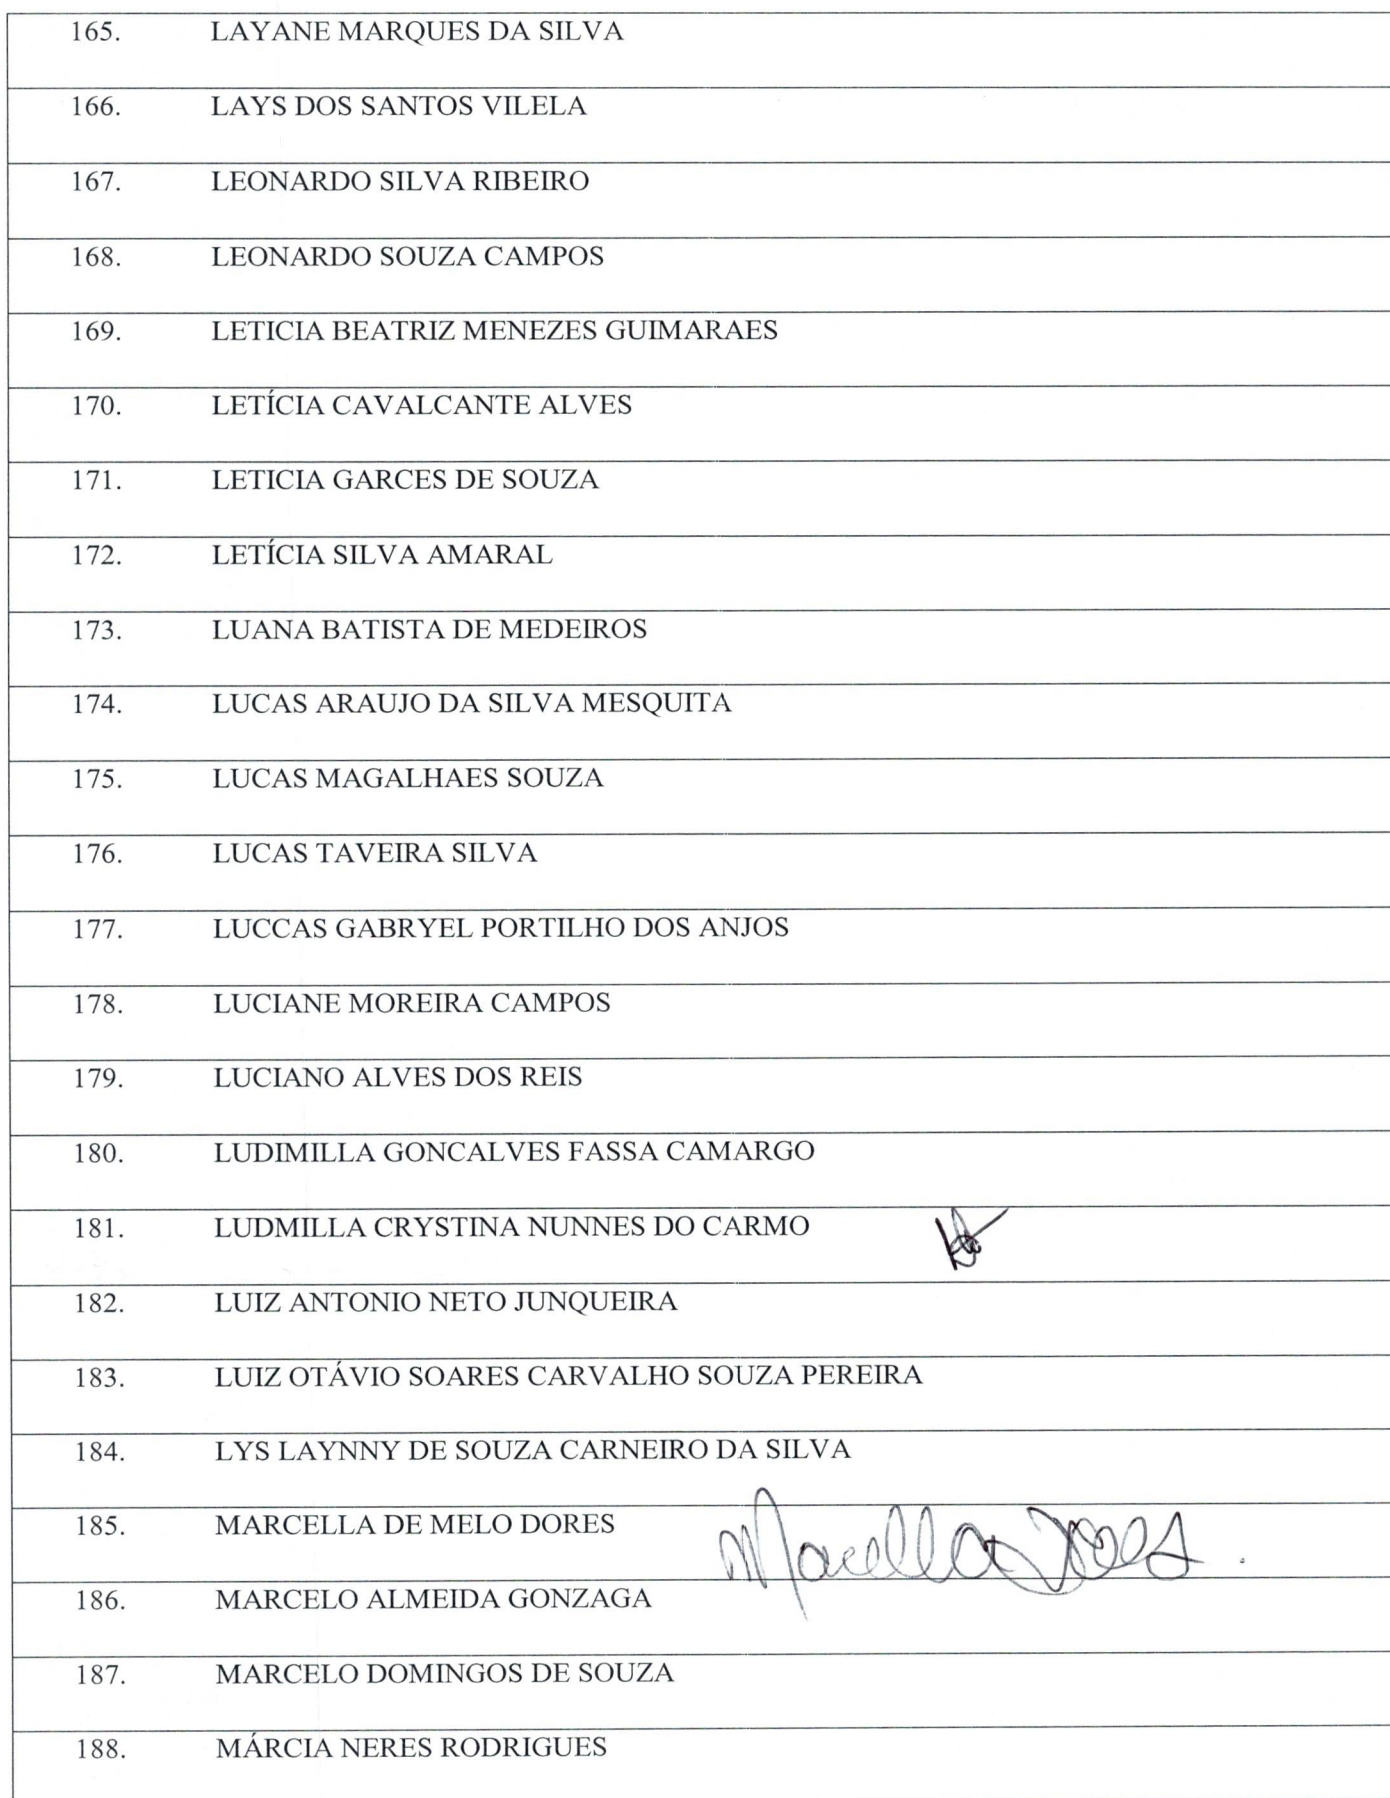 165. LAYANE MARQUES DA SILVA
166. LAYS DOS SANTOS VILELA
167. LEONARDO SILVA RIBEIRO
168. LEONARDO SOUZA CAMPOS
169. LETICIA BEATRIZ MENEZES GUIMARAES
170. LETÍCIA CAVALCANTE ALVES
171. LETICIA GARCES DE SOUZA
172. LETÍCIA SILVA AMARAL
173. LUANA BATISTA DE MEDEIROS
174. LUCAS ARAUJO DA SILVA MESQUITA
175. LUCAS MAGALHAES SOUZA
176. LUCAS TAVEIRA SILVA
177. LUCCAS GABRYEL PORTILHO DOS ANJOS
178. LUCIANE MOREIRA CAMPOS
179. LUCIANO ALVES DOS REIS
180. LUDIMILLA GONCALVES FASSA CAMARGO
181. LUDMILLA CRYSTINA NUNNES DO CARMO
182. LUIZ ANTONIO NETO JUNQUEIRA
183. LUIZ OTÁVIO SOARES CARVALHO SOUZA PEREIRA
184. LYS LAYNNY DE SOUZA CARNEIRO DA SILVA
185. MARCELLA DE MELO DORES Marcella Dores.
186. MARCELO ALMEIDA GONZAGA
187. MARCELO DOMINGOS DE SOUZA
188. MÁRCIA NERES RODRIGUES